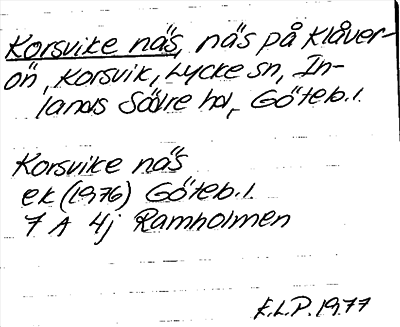 Korsvike näs, näs på Klåver-
ön, Korsvik, Lycke sn, In-
lands Södre hd, Göteb.l.
Korsvike näs
ek (1976) Göteb.l.
7 A 4j Ramholmen
E.L.P. 1977